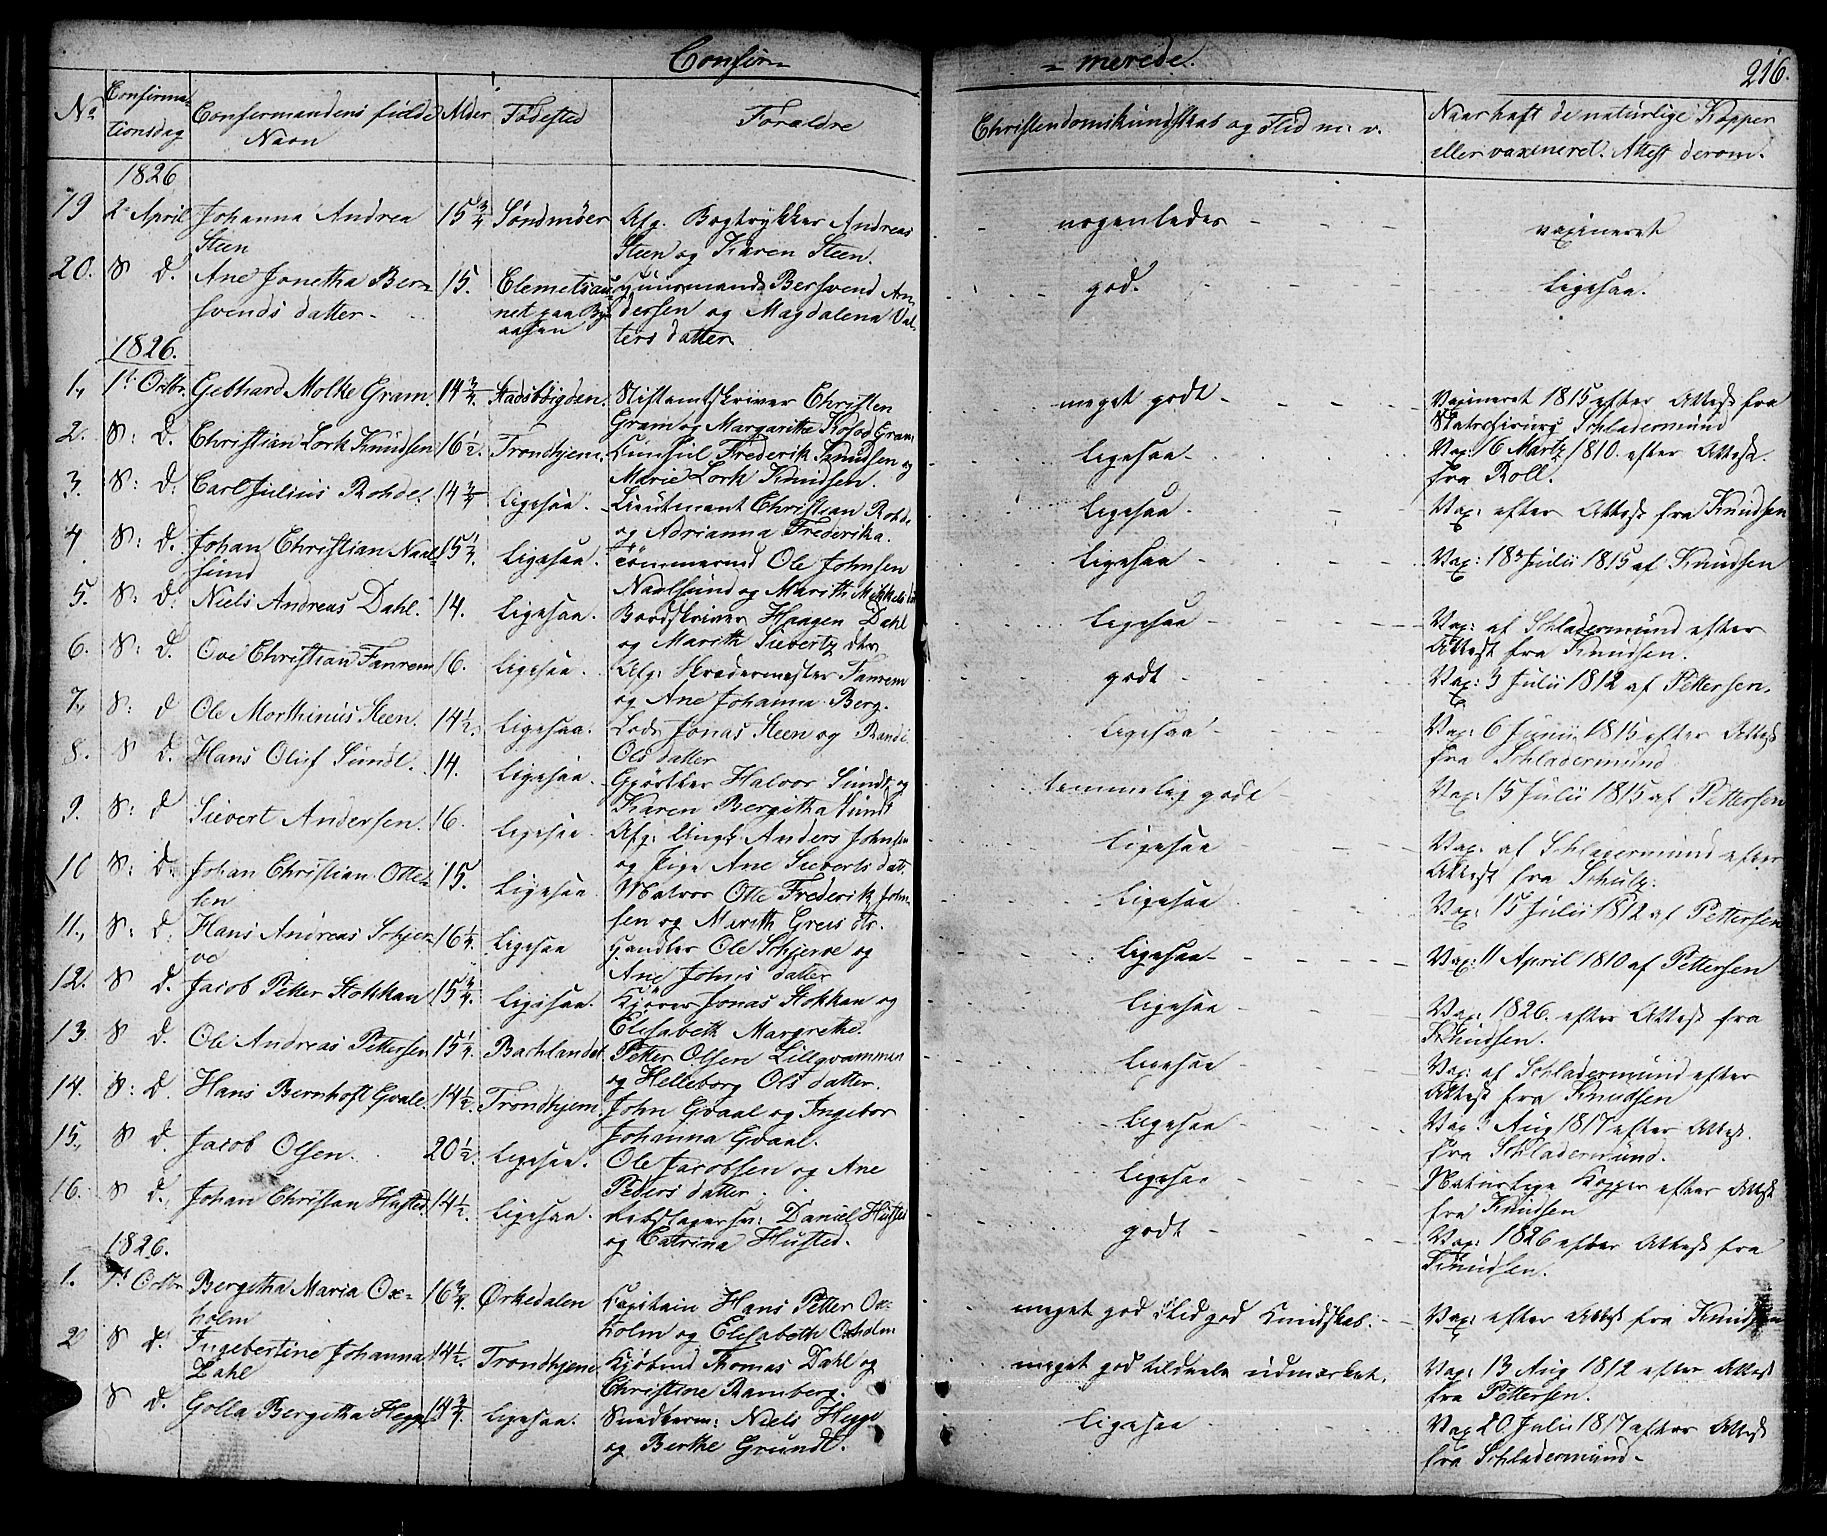 Confir=
= merede.
216.
No
Confirma=
tionsdag
Confirmandens fulde
Navn
Alder
Fødested
Forældre
Christendomskundskab og Flid m. v.
Naar haft de naturlige Kopper
eller vaxineret. Attest derom.
1826
19 2 April Johanna Andrea 15 3/4 Søndmøer Afg. Bogtrykker Andreas nogenledes - vaxineret
Steen Steen og Karen Steen.
20. S D. Ane Jonetha Ber= 15. Elemetsau= Huusmand Bersvend An= god. ligesaa.
svends datter - net paa By= dersen og Magdalena Val=
aasen ters datter
1826.
1. 1t Octbr. Gebhard Molke Gram. 14 3/4. Stadsbøigden. Stiftamtskriver Christen meget godt - Vaxineret 1815 efter Attest fra
Gram og Margarethe Gram Schladermund
2. S: D. Christian Lork Knudsen 16 1/2. Trondhjem. Consul Frederik Knudsen og ligesaa - Vax: 16 Martz 1810. efter Attest
Marie Lork Knudsen. fra Roll.
3. S: D: Carl Julius Rohde. 14 3/4 ligesaa. Lieutenant Christian Rohde ligesaa. Vax: efter Attest fra Knudsen
og Adrianna Frederika.
4 S: D. Johan Christian Naal= 15 1/2. ligesaa. Tømmermd Ole Johnsen ligesaa Vax: 18 Julii 1815 af Knudsen
sund Naalsund og Marith Mikkels
5. S: D: Niels Andreas Dahl. 14. ligesaa. Bordskriver Haagen Dahl ligesaa - Vax: af Schladermund efter
og Marith Sievertz dtr. Attest fra Knudsen.
6. S: D. Ove Christian Fanrem 16. ligesaa. Afg: Skredermester Fanrem godt Vax: 3 Julii 1812 af Pettersen.
og Ane Johanna Berg.
7. S: D Ole Morthinus Steen. 14 1/2. ligesaa. Lods Jonas Steen og Randi ligesaa Vax: 6 Junii 1815 efter Attest
Ols datter fra Schladermund
8. S D. Hans Oluf Sundt. 14. ligesaa. Gjørtler Halvor Sundt og temmelig godt Vax: 15 Julii 1815 af Pettersen
Karen Bergitha Sundt
9. S: D Sievert Andersen. 16. ligesaa. Afg: Ungk. Anders Johnsen ligesaa Vax: af Schladermund efter
og Pige Ane Sieverts datr. Attest fra Schulz.
10 S: D. Johan Christian Otte= 15. ligesaa. Matros Otte Frederik John= ligesaa Vax: 15 Julii 1812 af Pettersen
sen sen og Marith Greis dtr.
11. S: D. Hans Andreas Schjer= 16 1/4. ligesaa Handler Ole Schjerve og ligesaa - Vax: 11 April 1810 af Pettersen
ve Ane Johns datter
12. S D. Jacob Petter Stokkan 15 3/4. ligesaa. Kjører Jonas Stokkan og ligesaa - Vax: 1826. efter Attest fra
Elisabeth Margrethe. Knudsen.
13. S D. Ole Andreas Pettersen 15 1/2. Bachlandet Petter Olsen Lillegvammen ligesaa - Vax: af Schladermund efter
og Helleborg Ols datter. Attest fra Knudsen
14. S: D. Hans Bernhoft Gvale 14 1/2. Trondhjem. John Gvaal og Ingebor ligesaa Vax: Aug 1817 efter Attest.
Johanna Gvaal. fra Schladermund.
15. S D. Jacob Olsen. 20 1/2. ligesaa. Ole Jacobsen og Ane ligesaa Naturlige Kopper efter Attest
Peders datter. fra Knudsen
16. S D. Johan Christian Husted. 14 1/2. ligesaa. Rebslagersv: Daniel Husted godt - Vax: 1826 efter Attest fra
og Catrina Husted. Knudsen.
1826.
1. 1t Octbr Bergitha Maria Ox= 16 3/4. Ørkedalen Capitain Hans Petter Ox= meget god Flid god Kundskab. - Vax: efter Attest fra Knudsen
holm holm og Elisabeth Oxholm
2 S D. Ingebertine Johanna 14 1/2. Trondhjem Kjøbmd Thomas Dahl og meget god tildeels udmærket. Vax: 13 Aug 1812 efter Attest
Dahl Christine Ramberg. fra Pettersen.
S D. Golla Bergitha Hegge 14 3/4. ligesaa. Snedkerm: Niels Hegge ligesaa Vax 20 Julii 1817 efter Attest
og Berthe Grundt. fra Schladermund -